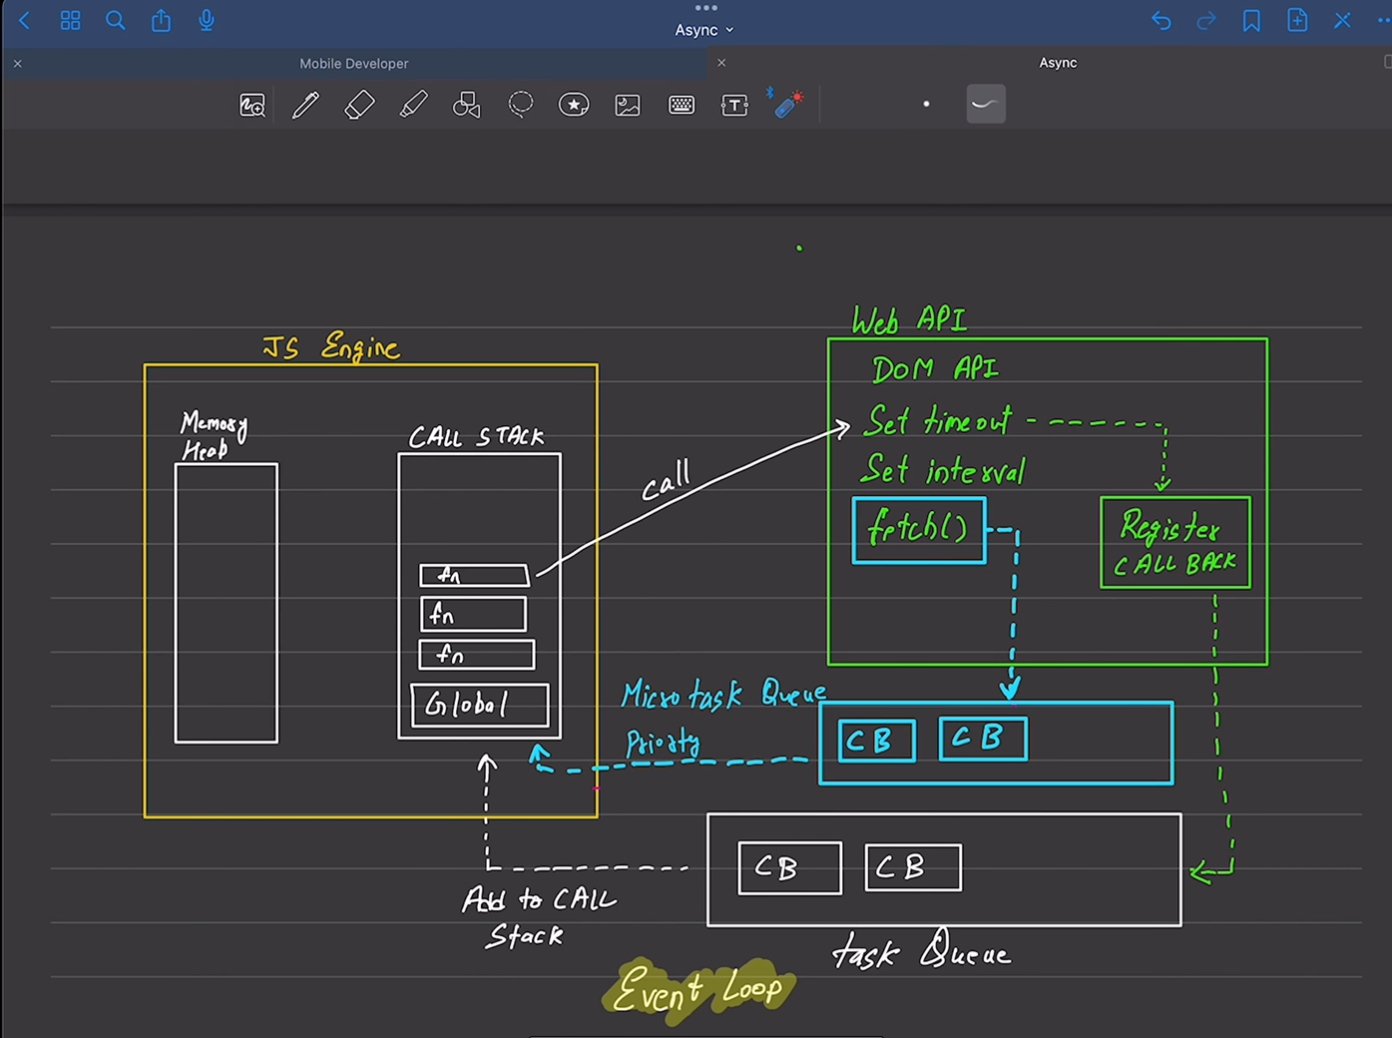 Async
Mobile Developer
Async
T
JS Engine
Memory
Heap
CALL STACK
fn
fn
fn
Global
call
Web API
DOM API
Set timeout
Set interval
fetch()
Register
CALL BACK
Microtask Queue
Priorty
CB
CB
CB
CB
Add to CALL
Stack
task Queue
Event Loop